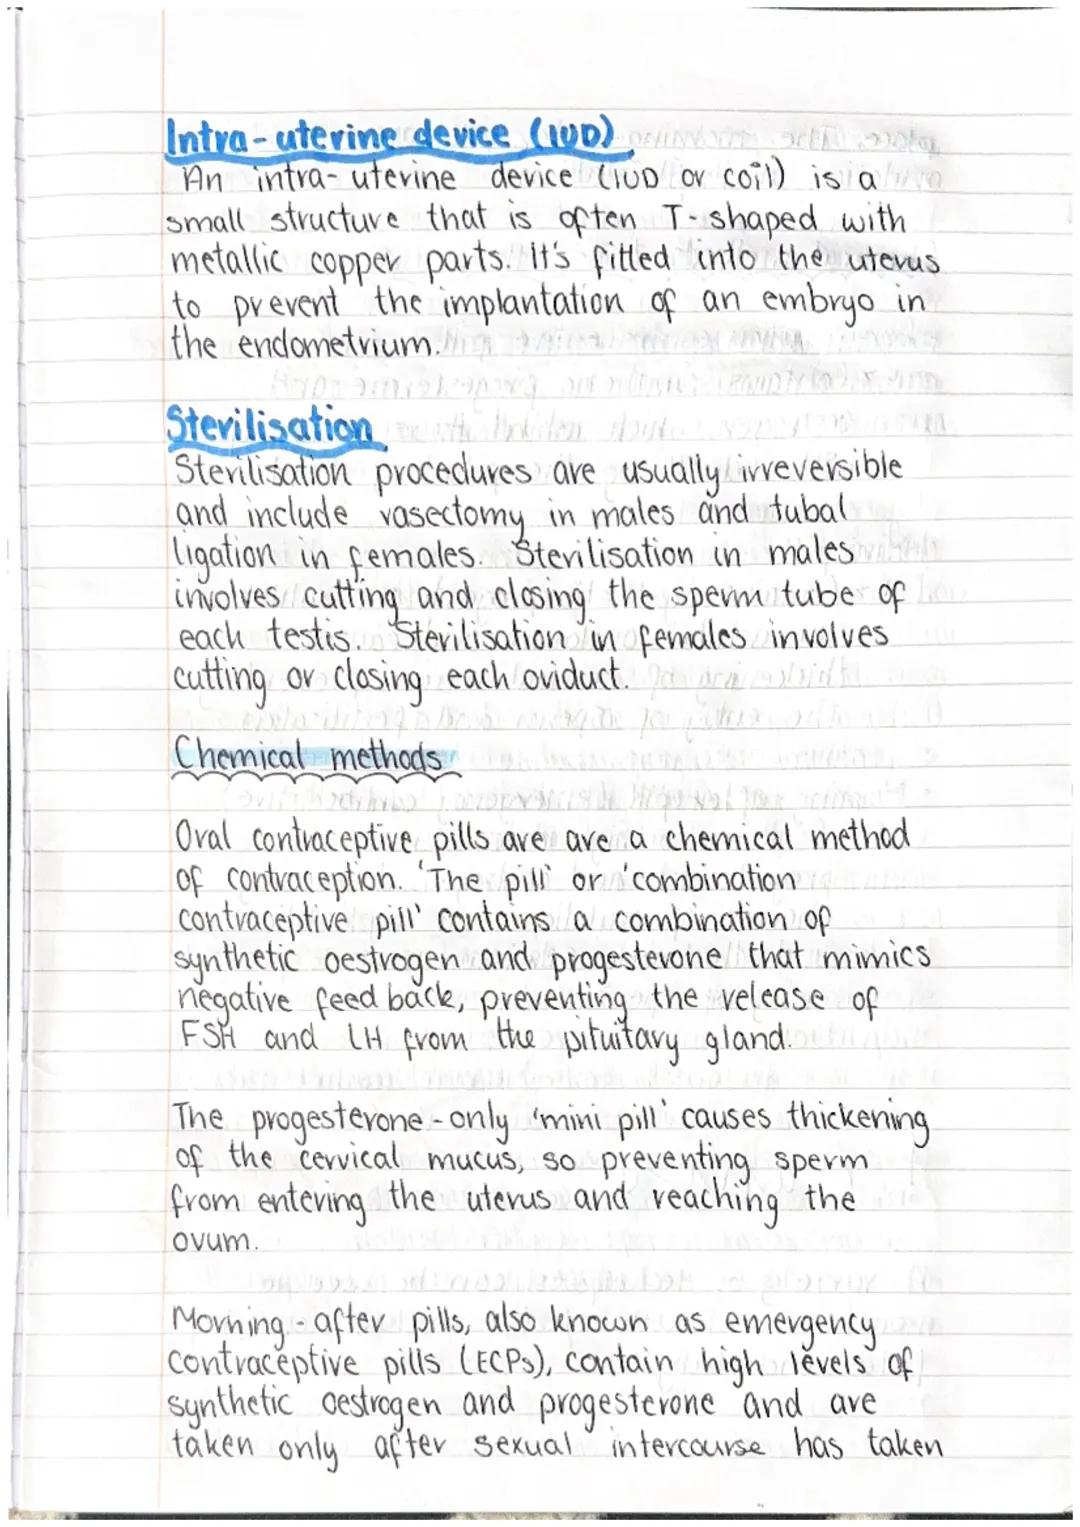 Intra-uterine device (IUD)
An intra-uterine device (IUD or coil) is a
small structure that is often T-shaped with
metallic copper parts. It's fitted into the uterus
to prevent the implantation of an embryo in
the endometrium.
Sterilisation
Sterilisation procedures are usually irreversible
and include vasectomy in males and tubal
ligation in females. Sterilisation in males
involves cutting and closing the sperm tube of
each testis. Sterilisation in females involves
cutting or closing each oviduct.
Chemical methods
Oral contraceptive pills are are a chemical method
of contraception. 'The pill' or 'combination
contraceptive pill' contains a combination of
synthetic oestrogen and progesterone that mimics
negative feed back, preventing the release of
FSH and LH from the pituitary gland.
The progesterone-only 'mini pill' causes thickening
of the cervical mucus, so preventing sperm
from entering the uterus and reaching the
ovum.
Morning-after pills, also known as emergency
contraceptive pills (ECPs), contain high levels of
synthetic oestrogen and progesterone and are
taken only after sexual intercourse has taken